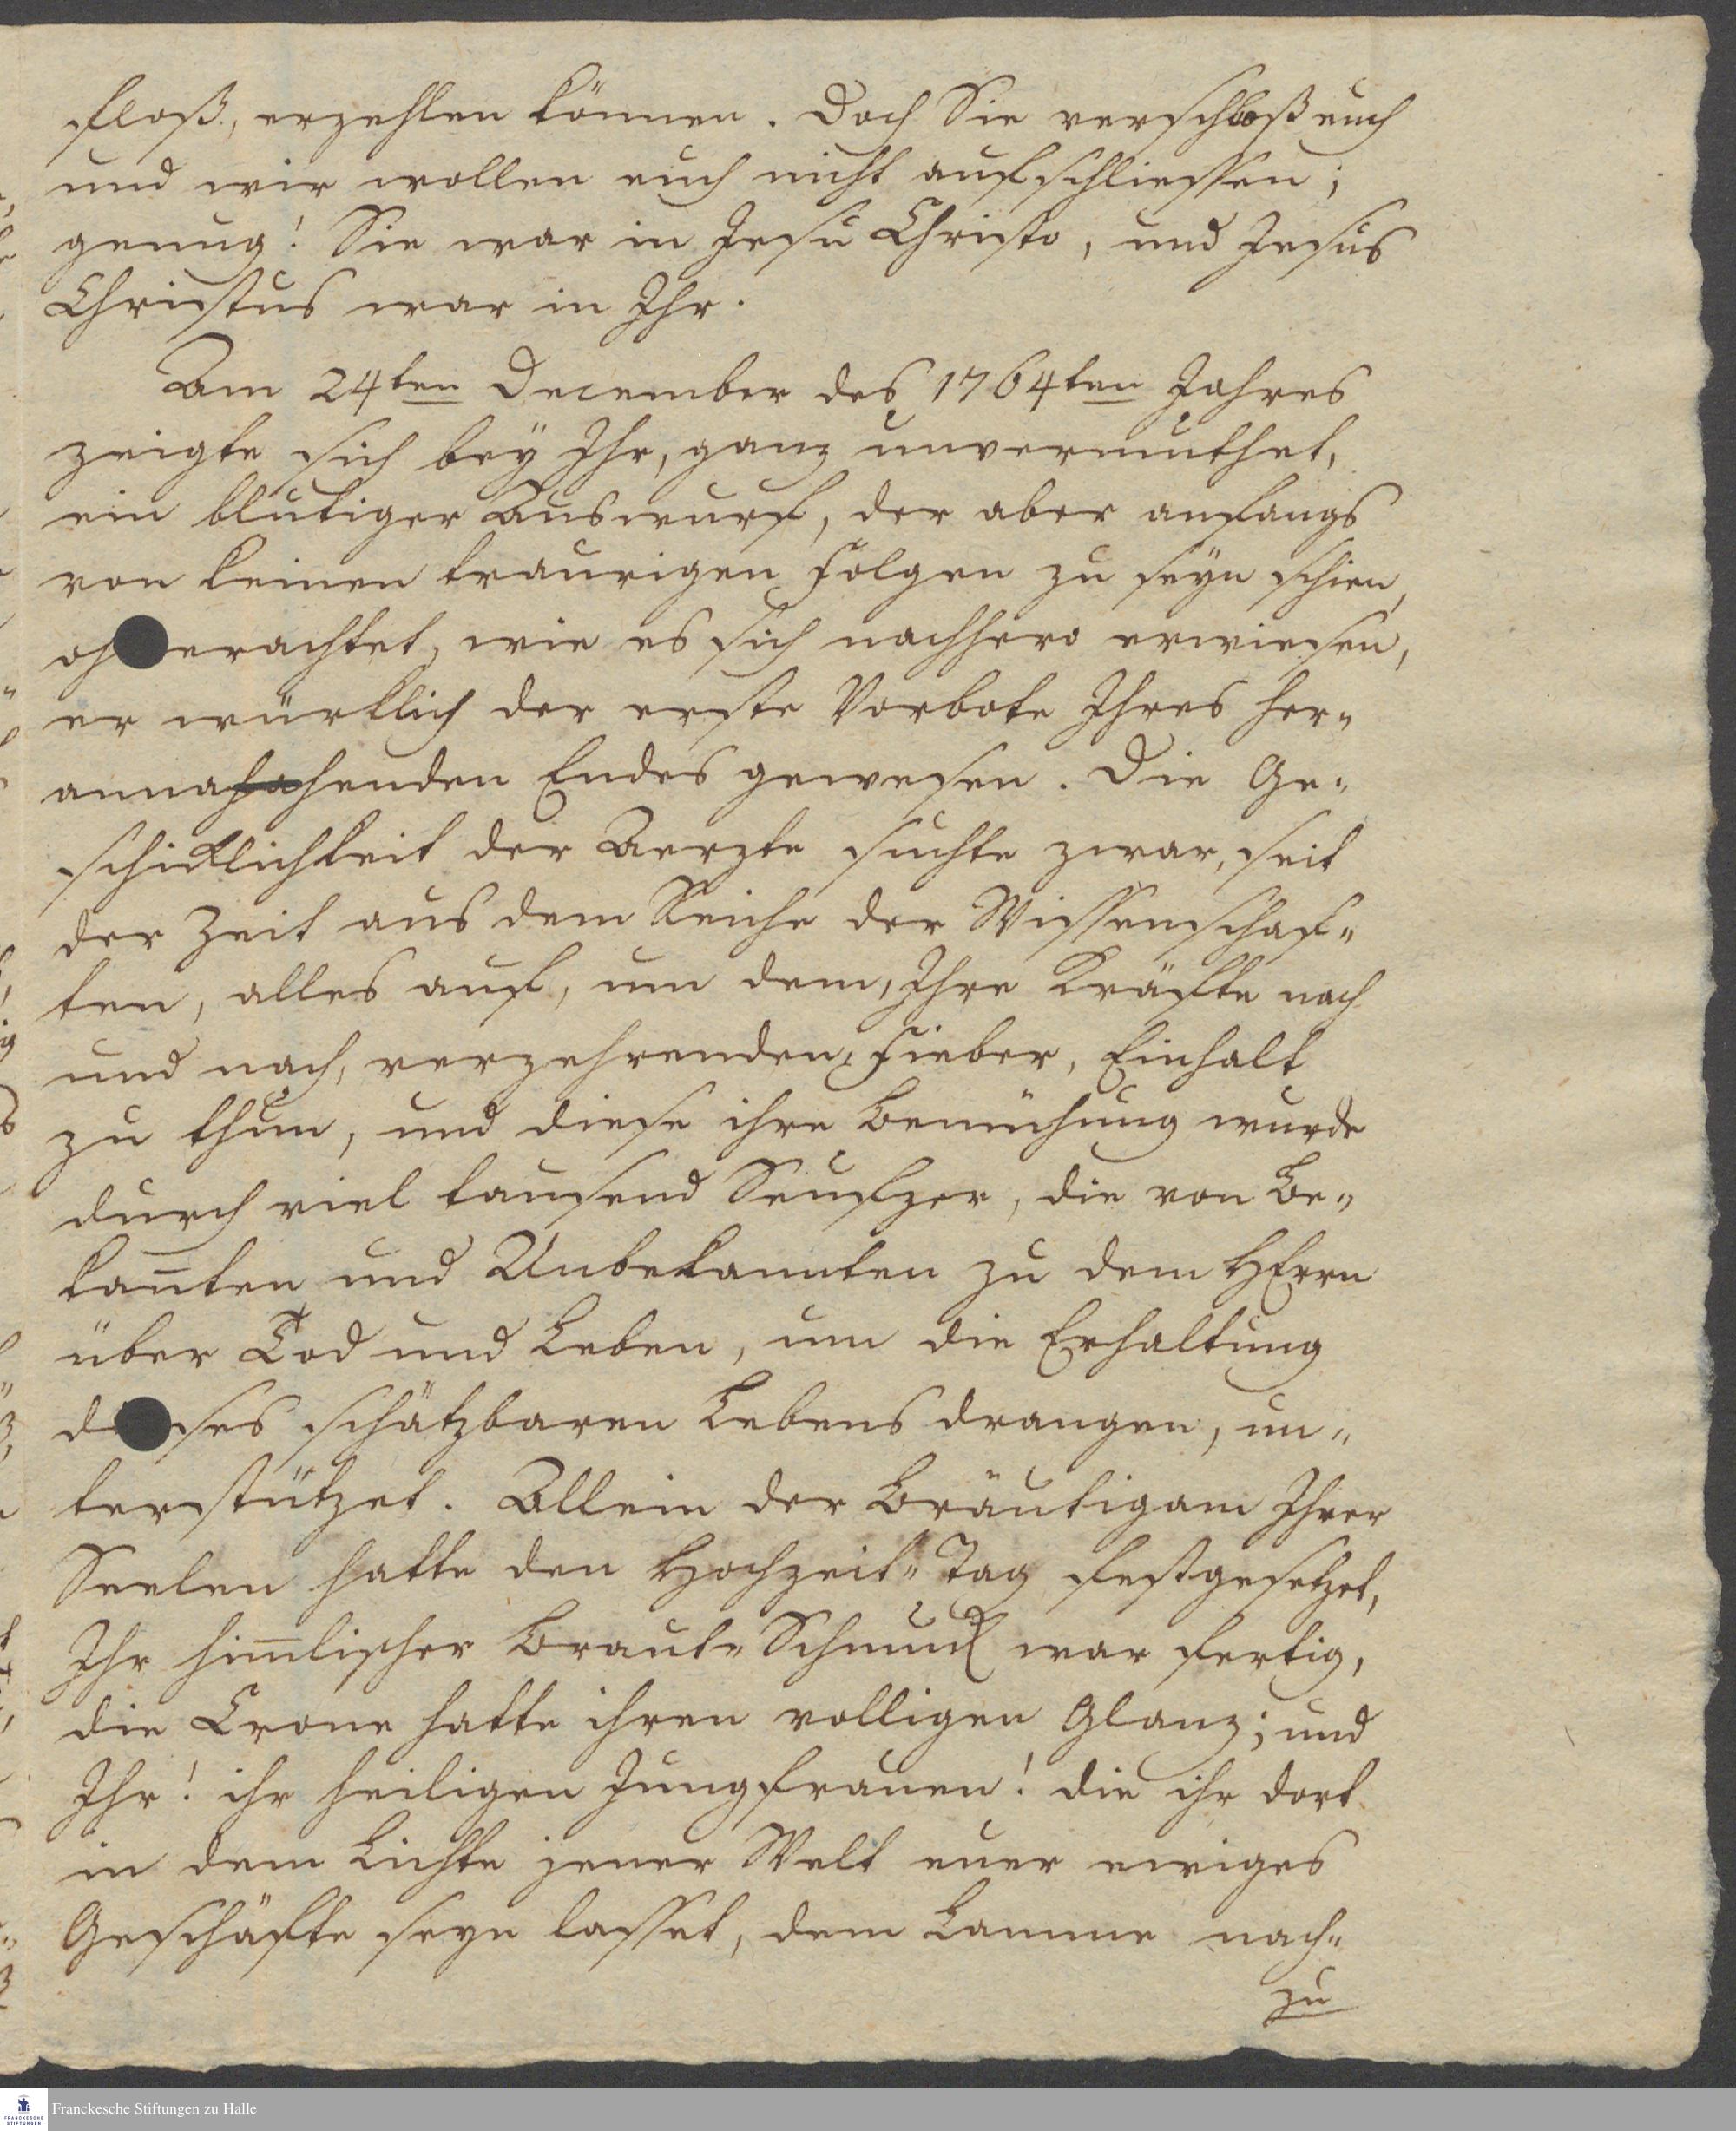 floß, erzehlen können. Doch Sie verschloß euch
und wir wollen euch nicht aufschliessen;
genug! Sie war in Jesu Christo, und Jesus
Christus war in Ihr.
Am 24ten December des 1764ten Jahres
zeigte sich bey Ihr, ganz unvermuthet,
ein blutiger Auswurf, der aber anfangs
von keinen traurigen Folgen zu seyn schien,
oh erachtet, wie es sich nachhero erwiesen,
er würklich der erste Vorbote Ihres her„
annahahenden Endes gewesen. Die Ge„
schicklichkeit der Aerzte suchte zwar, seit
der Zeit aus dem Reiche der Wissenschaf„
ten, alles auf, um dem, Ihre Kräfte nach
und nach, verzehrenden, Fieber, Einhalt
zu thun, und diese ihre Bemühung wurde
durch viel tausend Seufzer, die von Be„
kañten und Unbekannten zu dem HErrn
über Tod und Leben, um die Erhaltung
d ses schätzbaren Lebens drangen, un„
terstützet. Allein der Bräutigam Ihrer
Seelen hatte den Hochzeit„Tag festgesetzet,
Ihr him̃lischer Braut„Schmuck war fertig,
die Crone hatte ihren volligen Glanz; und
Ihr! ihr heiligen Jungfrauen! die ihr dort
in dem Lichte jener Welt euer ewiges
Geschäfte seyn lasset, dem Lamme nach„
zu
Franckesche Stiftungen zu Halle